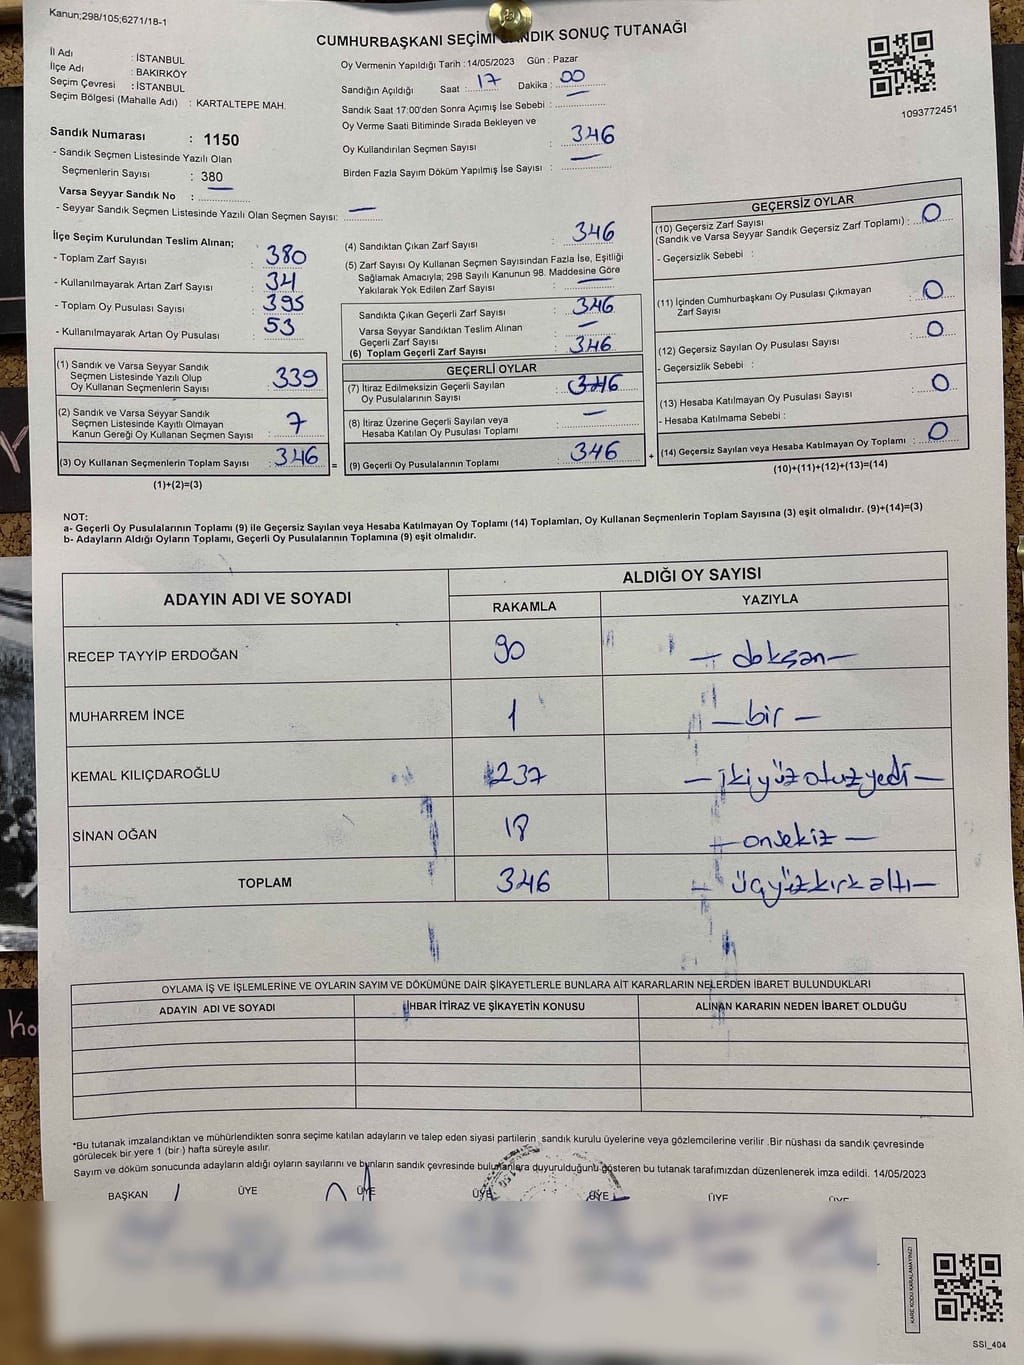 Kanun;298/105;6271/18-1
CUMHURBAŞKANI SEÇİMİ SANDIK SONUÇ TUTANAĞI
İl Adı : İSTANBUL
İlçe Adı : BAKIRKÖY
Seçim Çevresi : İSTANBUL
Seçim Bölgesi (Mahalle Adı) : KARTALTEPE MAH.
Sandık Numarası : 1150
- Sandık Seçmen Listesinde Yazılı Olan
Seçmenlerin Sayısı : 380
Varsa Seyyar Sandık No :
- Seyyar Sandık Seçmen Listesinde Yazılı Olan Seçmen Sayısı: —
Oy Vermenin Yapıldığı Tarih :14/05/2023 Gün : Pazar
Sandığın Açıldığı Saat : 17 Dakika : 00
Sandık Saat 17:00'den Sonra Açımış İse Sebebi : —
Oy Verme Saati Bitiminde Sırada Bekleyen ve
Oy Kullandırılan Seçmen Sayısı : 346
Birden Fazla Sayım Döküm Yapılmış İse Sayısı : —
1093772451
İlçe Seçim Kurulundan Teslim Alınan;
- Toplam Zarf Sayısı : 380
- Kullanılmayarak Artan Zarf Sayısı : 34
- Toplam Oy Pusulası Sayısı : 395
- Kullanılmayarak Artan Oy Pusulası : 53
(1) Sandık ve Varsa Seyyar Sandık
Seçmen Listesinde Yazılı Olup
Oy Kullanan Seçmenlerin Sayısı : 339
(2) Sandık ve Varsa Seyyar Sandık
Seçmen Listesinde Kayıtlı Olmayan
Kanun Gereği Oy Kullanan Seçmen Sayısı : 7
(3) Oy Kullanan Seçmenlerin Toplam Sayısı : 346
(1)+(2)=(3)
(4) Sandıktan Çıkan Zarf Sayısı : 346
(5) Zarf Sayısı Oy Kullanan Seçmen Sayısından Fazla İse, Eşitliği
Sağlamak Amacıyla; 298 Sayılı Kanunun 98. Maddesine Göre
Yakılarak Yok Edilen Zarf Sayısı : —
Sandıkta Çıkan Geçerli Zarf Sayısı : 346
Varsa Seyyar Sandıktan Teslim Alınan
Geçerli Zarf Sayısı : —
(6) Toplam Geçerli Zarf Sayısı : 346
GEÇERLİ OYLAR
(7) İtiraz Edilmeksizin Geçerli Sayılan
Oy Pusulalarının Sayısı : 346
(8) İtiraz Üzerine Geçerli Sayılan veya
Hesaba Katılan Oy Pusulası Toplamı : —
= (9) Geçerli Oy Pusulalarının Toplamı : 346 +
GEÇERSİZ OYLAR
(10) Geçersiz Zarf Sayısı
(Sandık ve Varsa Seyyar Sandık Geçersiz Zarf Toplamı) : 0
- Geçersizlik Sebebi :
(11) İçinden Cumhurbaşkanı Oy Pusulası Çıkmayan
Zarf Sayısı : 0
(12) Geçersiz Sayılan Oy Pusulası Sayısı : 0
- Geçersizlik Sebebi :
(13) Hesaba Katılmayan Oy Pusulası Sayısı : 0
- Hesaba Katılmama Sebebi :
(14) Geçersiz Sayılan veya Hesaba Katılmayan Oy Toplamı : 0
(10)+(11)+(12)+(13)=(14)
NOT:
a- Geçerli Oy Pusulalarının Toplamı (9) ile Geçersiz Sayılan veya Hesaba Katılmayan Oy Toplamı (14) Toplamları, Oy Kullanan Seçmenlerin Toplam Sayısına (3) eşit olmalıdır. (9)+(14)=(3)
b- Adayların Aldığı Oyların Toplamı, Geçerli Oy Pusulalarının Toplamına (9) eşit olmalıdır.
ADAYIN ADI VE SOYADI ALDIĞI OY SAYISI
RAKAMLA YAZIYLA
RECEP TAYYİP ERDOĞAN 90 — doksan —
MUHARREM İNCE 1 — bir —
KEMAL KILIÇDAROĞLU 237 — ikiyüzotuzyedi —
SİNAN OĞAN 18 — onsekiz —
TOPLAM 346 — üçyüzkırkaltı —
OYLAMA İŞ VE İŞLEMLERİNE VE OYLARIN SAYIM VE DÖKÜMÜNE DAİR ŞİKAYETLERLE BUNLARA AİT KARARLARIN NELERDEN İBARET BULUNDUKLARI
ADAYIN ADI VE SOYADI İHBAR İTİRAZ VE ŞİKAYETİN KONUSU ALINAN KARARIN NEDEN İBARET OLDUĞU
*Bu tutanak imzalandıktan ve mühürlendikten sonra seçime katılan adayların ve talep eden siyasi partilerin sandık kurulu üyelerine veya gözlemcilerine verilir .Bir nüshası da sandık çevresinde
görülecek bir yere 1 (bir ) hafta süreyle asılır.
Sayım ve döküm sonucunda adayların aldığı oyların sayılarını ve bunların sandık çevresinde bulunanlara duyurulduğunu gösteren bu tutanak tarafımızdan düzenlenerek imza edildi. 14/05/2023
BAŞKAN ÜYE ÜYE ÜYE ÜYE ÜYE ÜYE
KARE KODU KARALAMAYINIZ!
SSI_404